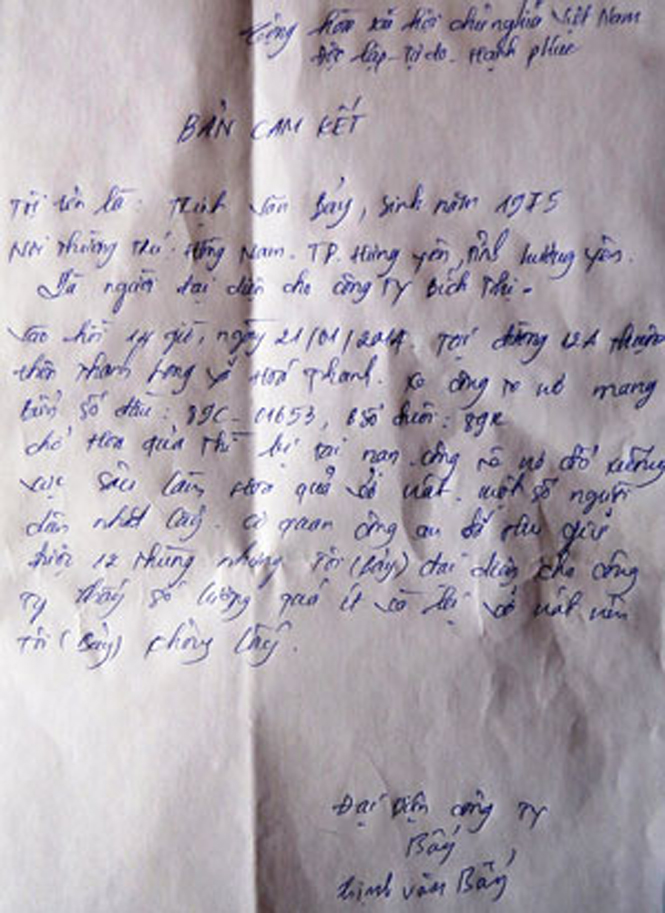 Cộng hòa xã hội chủ nghĩa Việt Nam
Độc lập - Tự do - Hạnh phúc
BẢN CAM KẾT
Tôi tên là: Thịnh Văn Bảy, sinh năm 1975
Nơi thường trú: Hồng Nam. TP. Hưng Yên, tỉnh Hưng Yên.
Là người đại diện cho công ty Bích Thị -
Vào hồi 14 giờ, ngày 21/01/2014. Tại đường 12A thuộc
thôn Thanh Long xã Hoá Thanh. xe công te nơ mang
Biển số đầu: 89C-01653, B số đuôi: 89R
chở Hoa quả thì bị tai nạn công te nơ đổ xuống
vực sâu làm Hoa quả vỡ nát. một số người
dân nhặt lấy. cơ quan công an đã thu giữ
được 12 thùng nhưng Tôi (Bảy) đại diện cho công
Ty thấy số lượng quá ít và lại vỡ nát nên
Tôi (Bảy) không lấy.
Đại diện công Ty
Bảy
Thịnh Văn Bảy